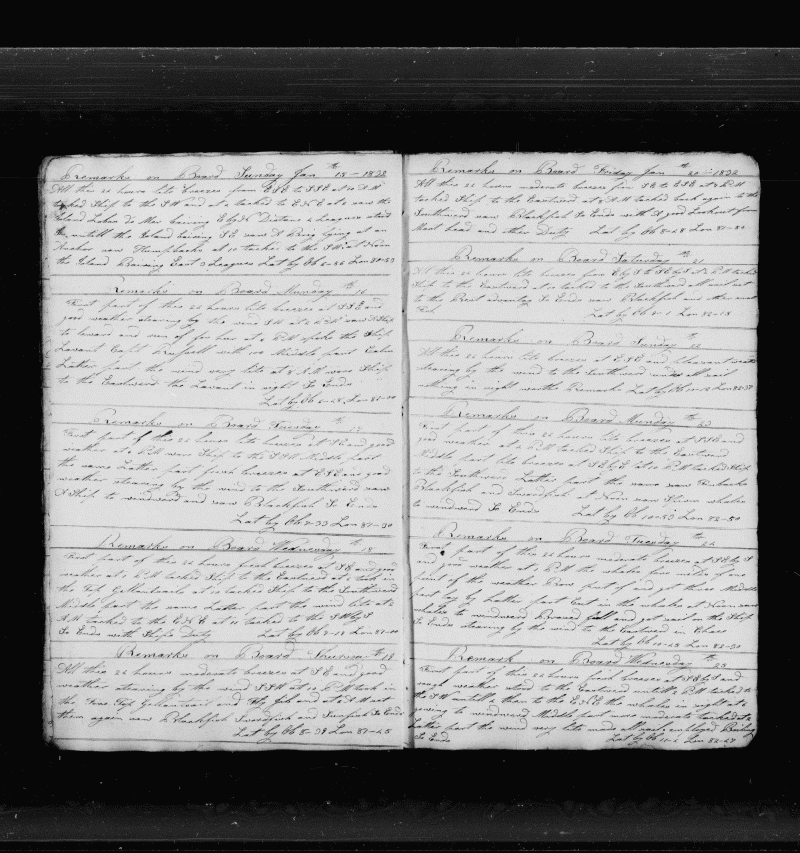 Remarks on Board Sunday Jan th 15 - 1832
All this 24 hours lite breezes from ESE to SSE at 10 AM
tacked Ship to the SW and at 2 tacked to ENE at 4 saw the
Island Lobos De Mar bearing E by N Distance 4 Leagues stood
in untill the Island bearing SE saw A Brig lying at an
Anchor saw Humpbacks at 10 tacked to the SW at Noon
the Island Bearing East 9 Leagues Lat by Ob 6-56 Lon 80-53
Remarks on Board Monday th 16
First part of this 24 hours lite breezes at SSE and
good weather stearing by the wind SW at 2 PM saw A Ship
to leward and run of for her at 4 PM spoke the Ship
Lavant Capt Russell with Middle part Calm
Latter part the wind very lite at 8 AM wore Ship
to the Eastward the Lavant in sight So Ends
Lat by Ob 6-58 Lon 81-00
Remarks on Board Tuesday th 17
First part of this 24 hours lite breezes at SE and good
weather at 4 PM wore Ship to the SSW Middle part
the same Latter part fresh breezes at ESE and good
weather stearing by the wind to the Southward saw
A Ship to windward and saw Blackfish So Ends
Lat by Ob 7-33 Lon 81-30
Remarks on Board Wednesday th 18
First part of this 24 hours fresh breezes at SE and good
weather at 1 PM tacked Ship to the Eastward at 6 took in
the Top Gallantsails at 10 tacked Ship to the Southward
Middle part the same Latter part the wind lite at 4
AM tacked to the ENE at 11 tacked to the SW by S
So Ends with Ships Duty Lat by Ob 7-18 Lon 81-00
Remarks on Board Thursday th 19
All this 24 hours moderate breezes at SE and good
weather stearing by the wind SSW at 10 PM took in
the Fore Top Gallantsail and Fly Jib and at 4 AM set
them again saw Blackfish Swordfish and Sunfish So Ends
Lat by Ob 8-39 Lon 81-45
Remarks on Board Friday Jan th 20 - 1832
All this 24 hours moderate breezes from SE to ESE at 4 PM
tacked Ship to the Eastward at 4 AM tacked back again to the
Southward saw Blackfish So Ends with A good Lookout from
Mast head and other Duty Lat by Ob 8-48 Lon 81-50
Remarks on Board Saturday th 21
All this 24 hours lite breezes from E by S to S by E at 4 PM tacked
Ship to the Eastward at 10 tacked to the Southward all sail set
to the Best advantage So Ends saw Blackfish and other small
Fish Lat by Ob 9-1 Lon 82-18
Remarks on Board Sunday th 22
All this 24 hours lite breezes at ESE and pleasant weather
stearing by the wind to the Southward under all sail
nothing in sight worth Remarks Lat by Ob 10-12 Lon 82-57
Remarks on Board Monday th 23
First part of this 24 hours lite breezes at SSE and
good weather at 2 PM tacked Ship to the Eastward
Middle part lite breezes at SE by E at 4 AM tacked Ship
to the Southward Latter part the same saw Finbacks
Blackfish and Swordfish at Noon saw Sperm whales
to windward So Ends Lat by Ob 10-53 Lon 82-50
Remarks on Board Tuesday th 24
First part of this 24 hours moderate breezes at SE by S
and good weather at 1 PM the whales bore
point of the weather Bow put of and got three Middle
part lay by Latter part Cut in the whales at Noon saw
whales to windward Braced full and got sail on the Ship
So Ends stearing by the wind to the Eastward in Chase
Lat by Ob 10-48 Lon 82-30
Remarks on Board Wednesday th 25
First part of this 24 hours fresh breezes at SE by S and
rough weather stood to the Eastward untill 2 PM tacked to
the SW untill 4 then to the ENE the whales in sight at 6
going to windward Middle part more moderate tacked at 4
Latter part the wind very lite made all sail employed Boiling
So Ends Lat by Ob 11-2 Lon 82-27